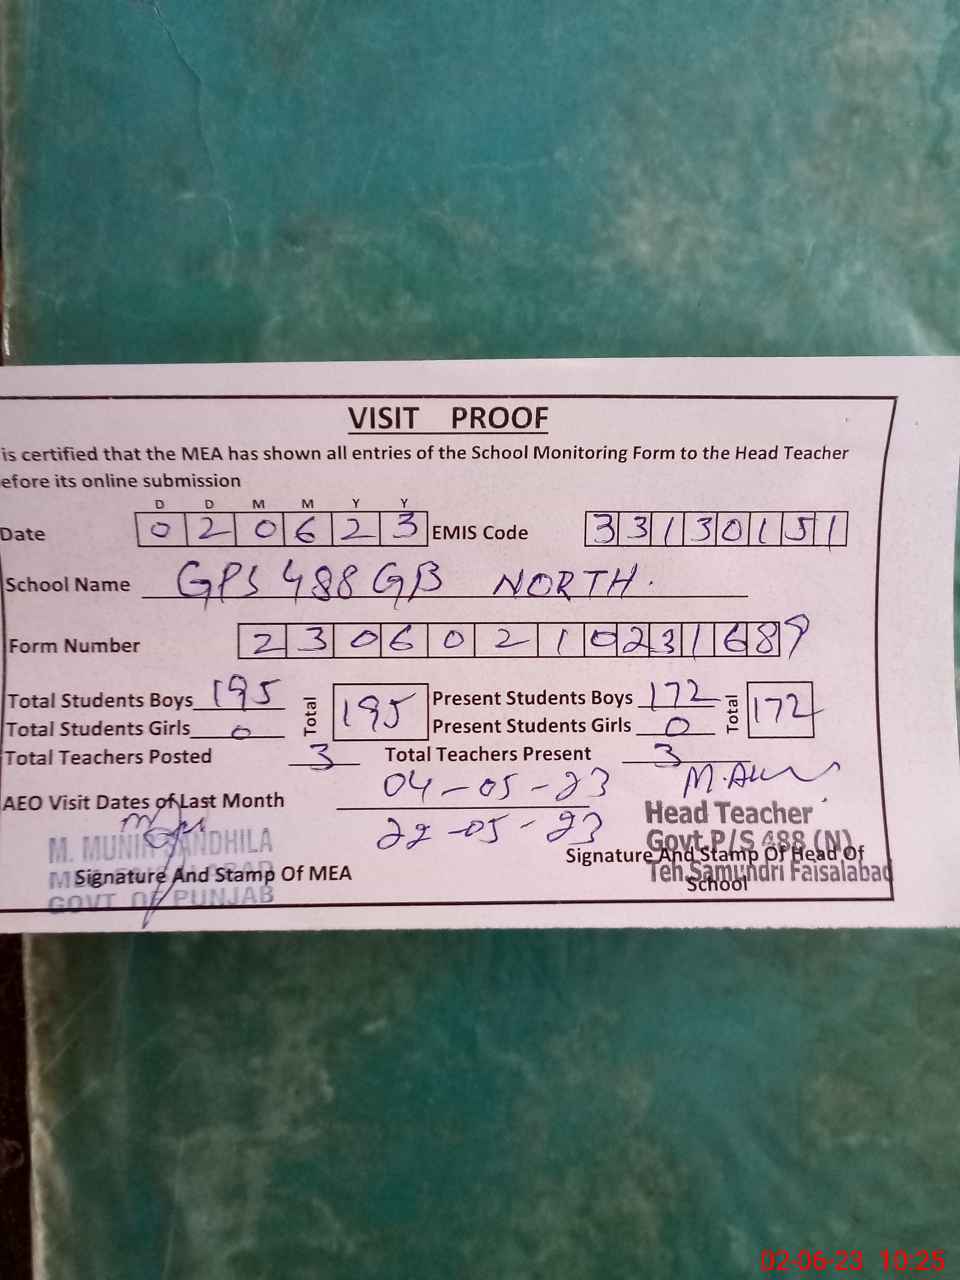 VISIT PROOF
is certified that the MEA has shown all entries of the School Monitoring Form to the Head Teacher
efore its online submission
D D M M Y Y
Date 0 2 0 6 2 3 EMIS Code 3 3 1 3 0 1 5 1
School Name GPS 488 GB NORTH.
Form Number 2 3 0 6 0 2 1 0 2 3 1 6 8 9
Total Students Boys 195 Total 195 Present Students Boys 172 Total 172
Total Students Girls 0 Present Students Girls 0
Total Teachers Posted 3 Total Teachers Present 3
AEO Visit Dates of Last Month 04-05-23
22-05-23
Head Teacher
Govt. P/S 488 (N)
Teh. Samundri Faisalabad
Signature And Stamp Of Head Of
School
M. MUNIR
GOVT OF PUNJAB
Signature And Stamp Of MEA
02-06-23 10:25